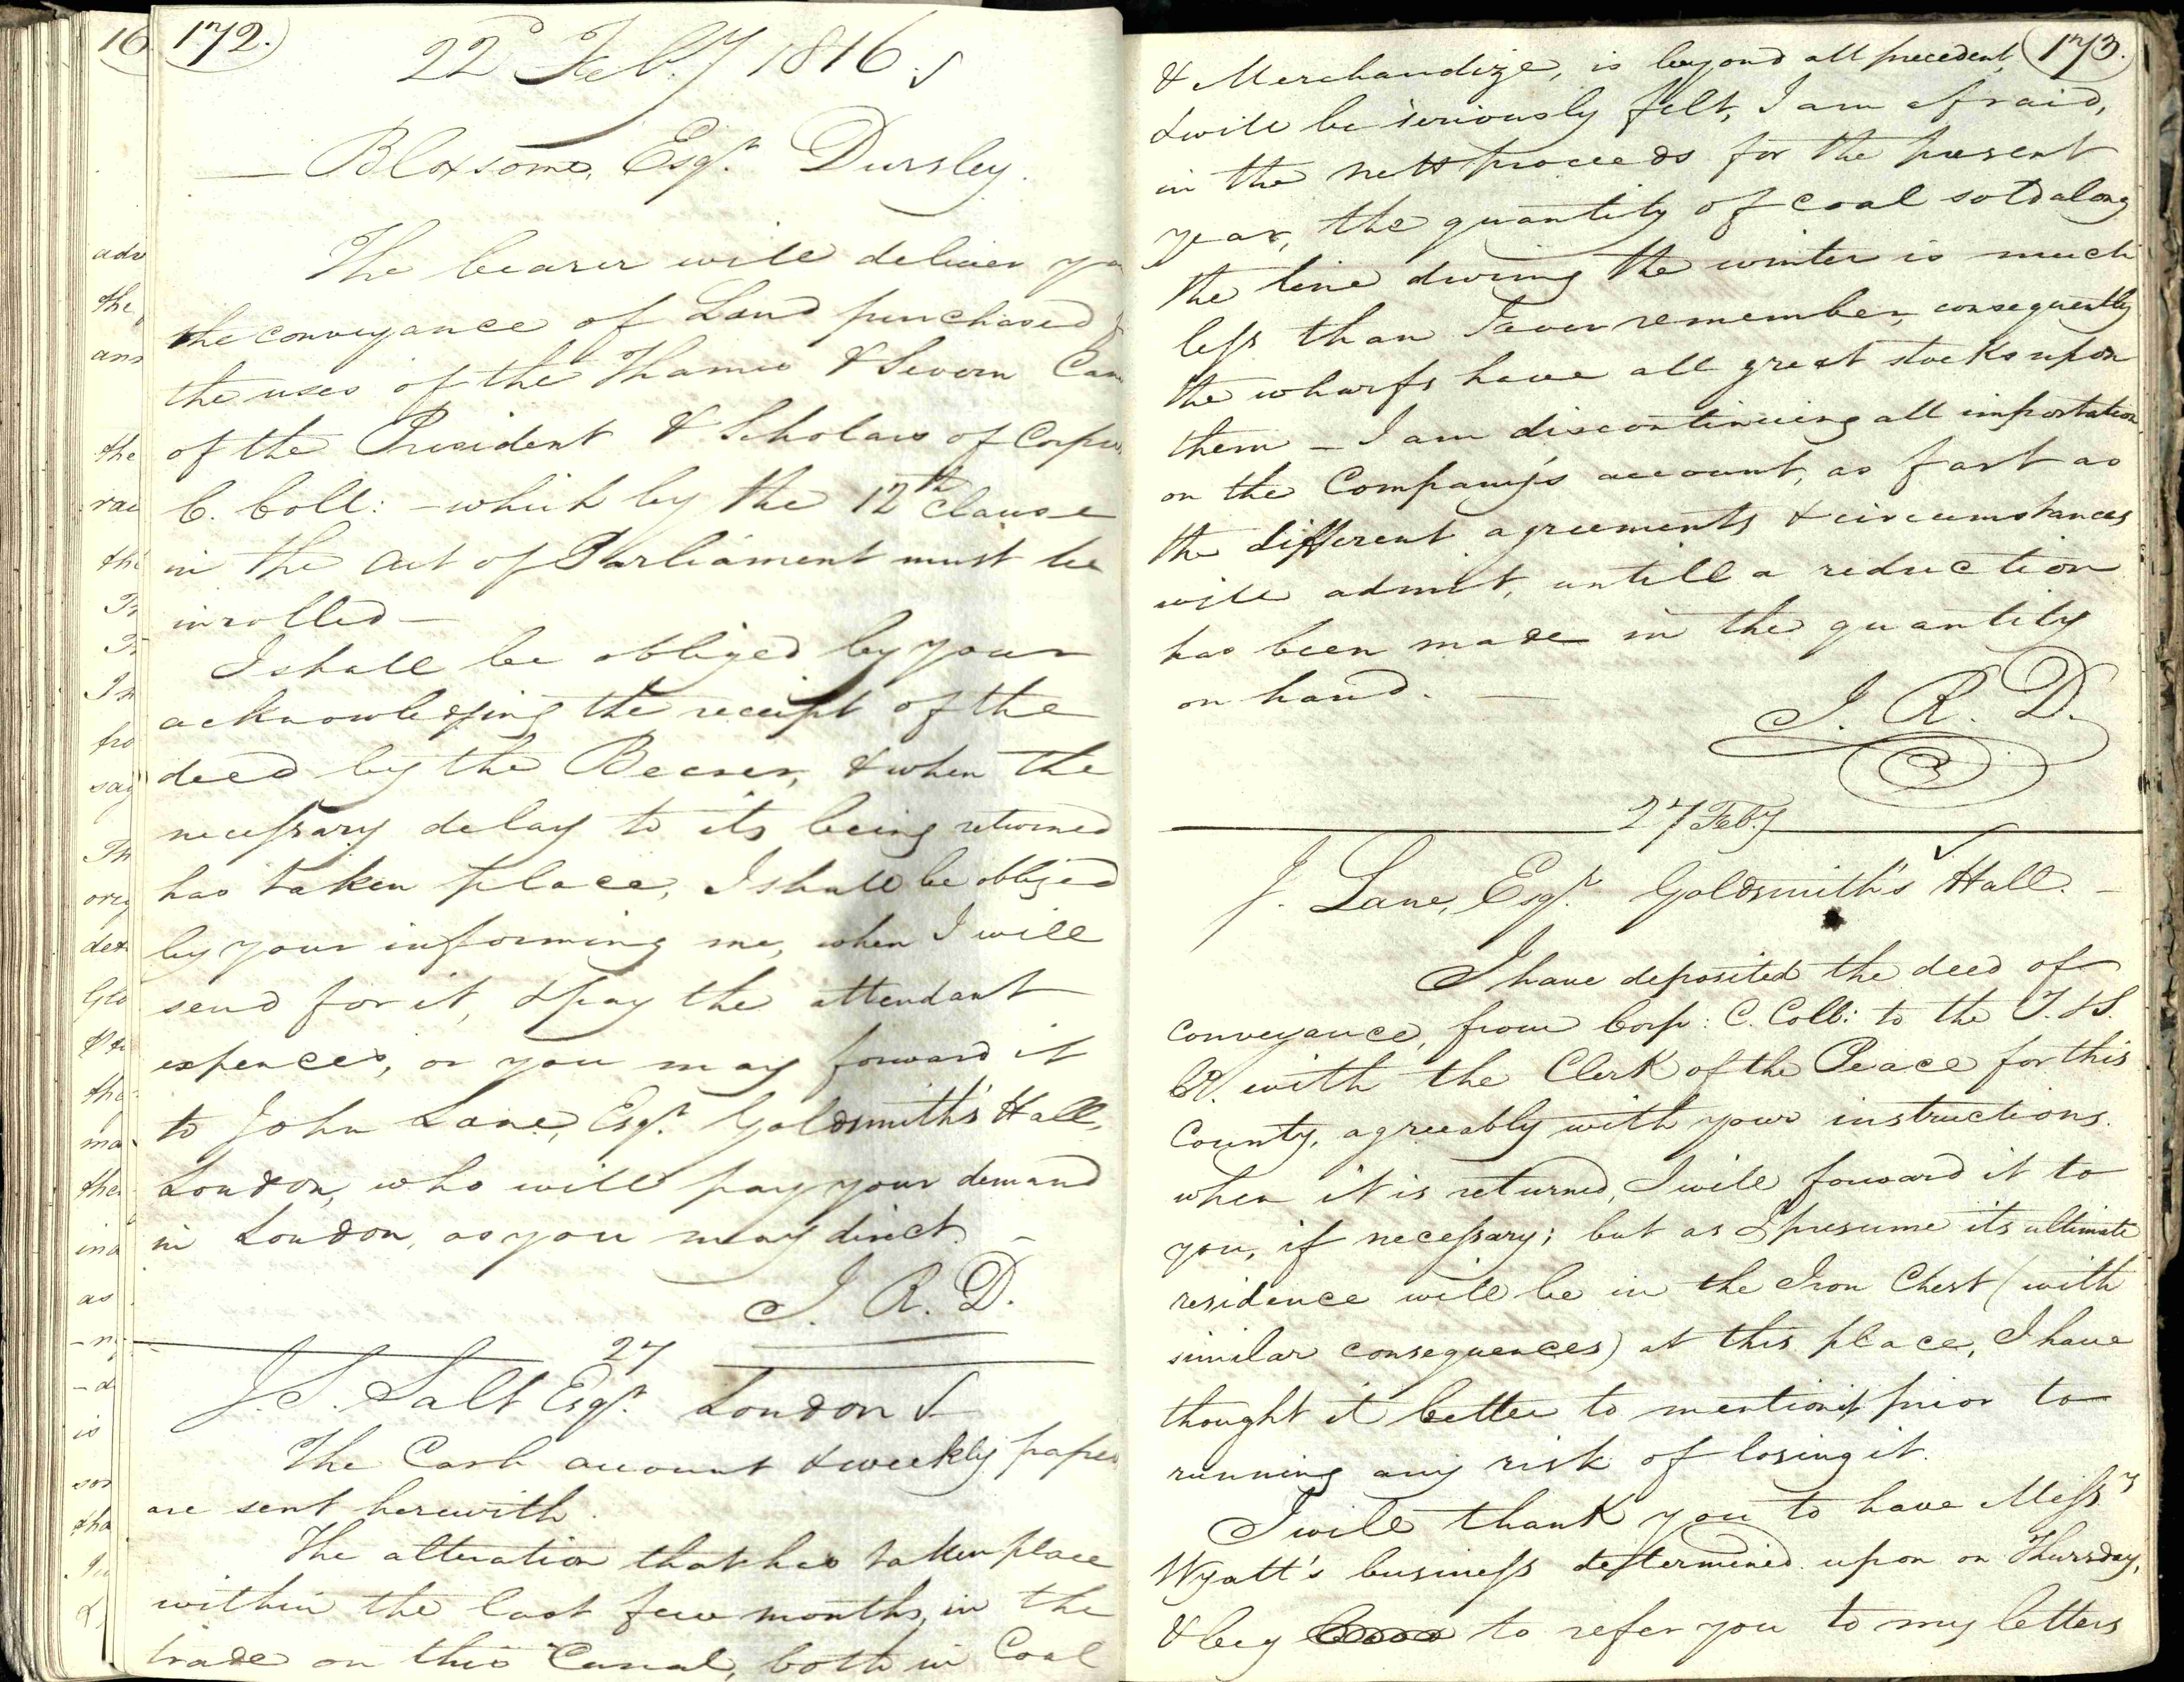 172.
22d Feby 1816.
— Bloxsome, Esqr. Dursley.
The bearer will deliver yo
the conveyance of Land purchased
the uses of the Thames & Severn Can
of the President & Scholars of Corpus
C. Coll: - which by the 12th Clause
in the Act of Parliament must be
inrolled —
I shall be obliged by your
acknowledging the receipt of the
deed by the Bearer, & when the
necessary delay to its being returned
has taken place, I shall be obliged
by your informing me, when I will
send for it, & pay the attendant
expences, or you may forward it
to John Lane, Esqr. Goldsmith's Hall,
London, who will pay your demand
in London, as you may direct. -
J. R. D.
27
J. S. Salt Esqr. London
The Cash account & weekly papers
are sent herewith.
The alteration that has taken place
within the last few months, in the
trade on this Canal, both in Coal
173.
& Merchandize, is beyond all precedent,
& will be seriously felt, I am afraid,
in the nett proceeds for the present
year, the quantity of coal sold along
the line during the winter is much
less than I ever remember, consequently
the wharfs have all great stocks upon
them - I am discontinuing all importation
on the Company's account, as fast as
the different agreements & circumstances
will admit, untill a reduction
has been made in the quantity
on hand. —
J. R. D.
27 Feby
J. Lane, Esqr. Goldsmith's Hall. -
I have deposited the deed of
conveyance, from Corp: C. Coll: to the T. & S.
Cl. with the Clerk of the Peace for this
County, agreeably with your instructions.
when it is returned, I will forward it to
you, if necessary; but as I presume its ultimate
residence will be in the Iron Chest (with
similar consequences) at this place, I have
thought it better to mention it prior to
running any risk of losing it.
I will thank you to have Messrs
Wyatt's business determined upon on Thursday,
& beg to refer you to my letters